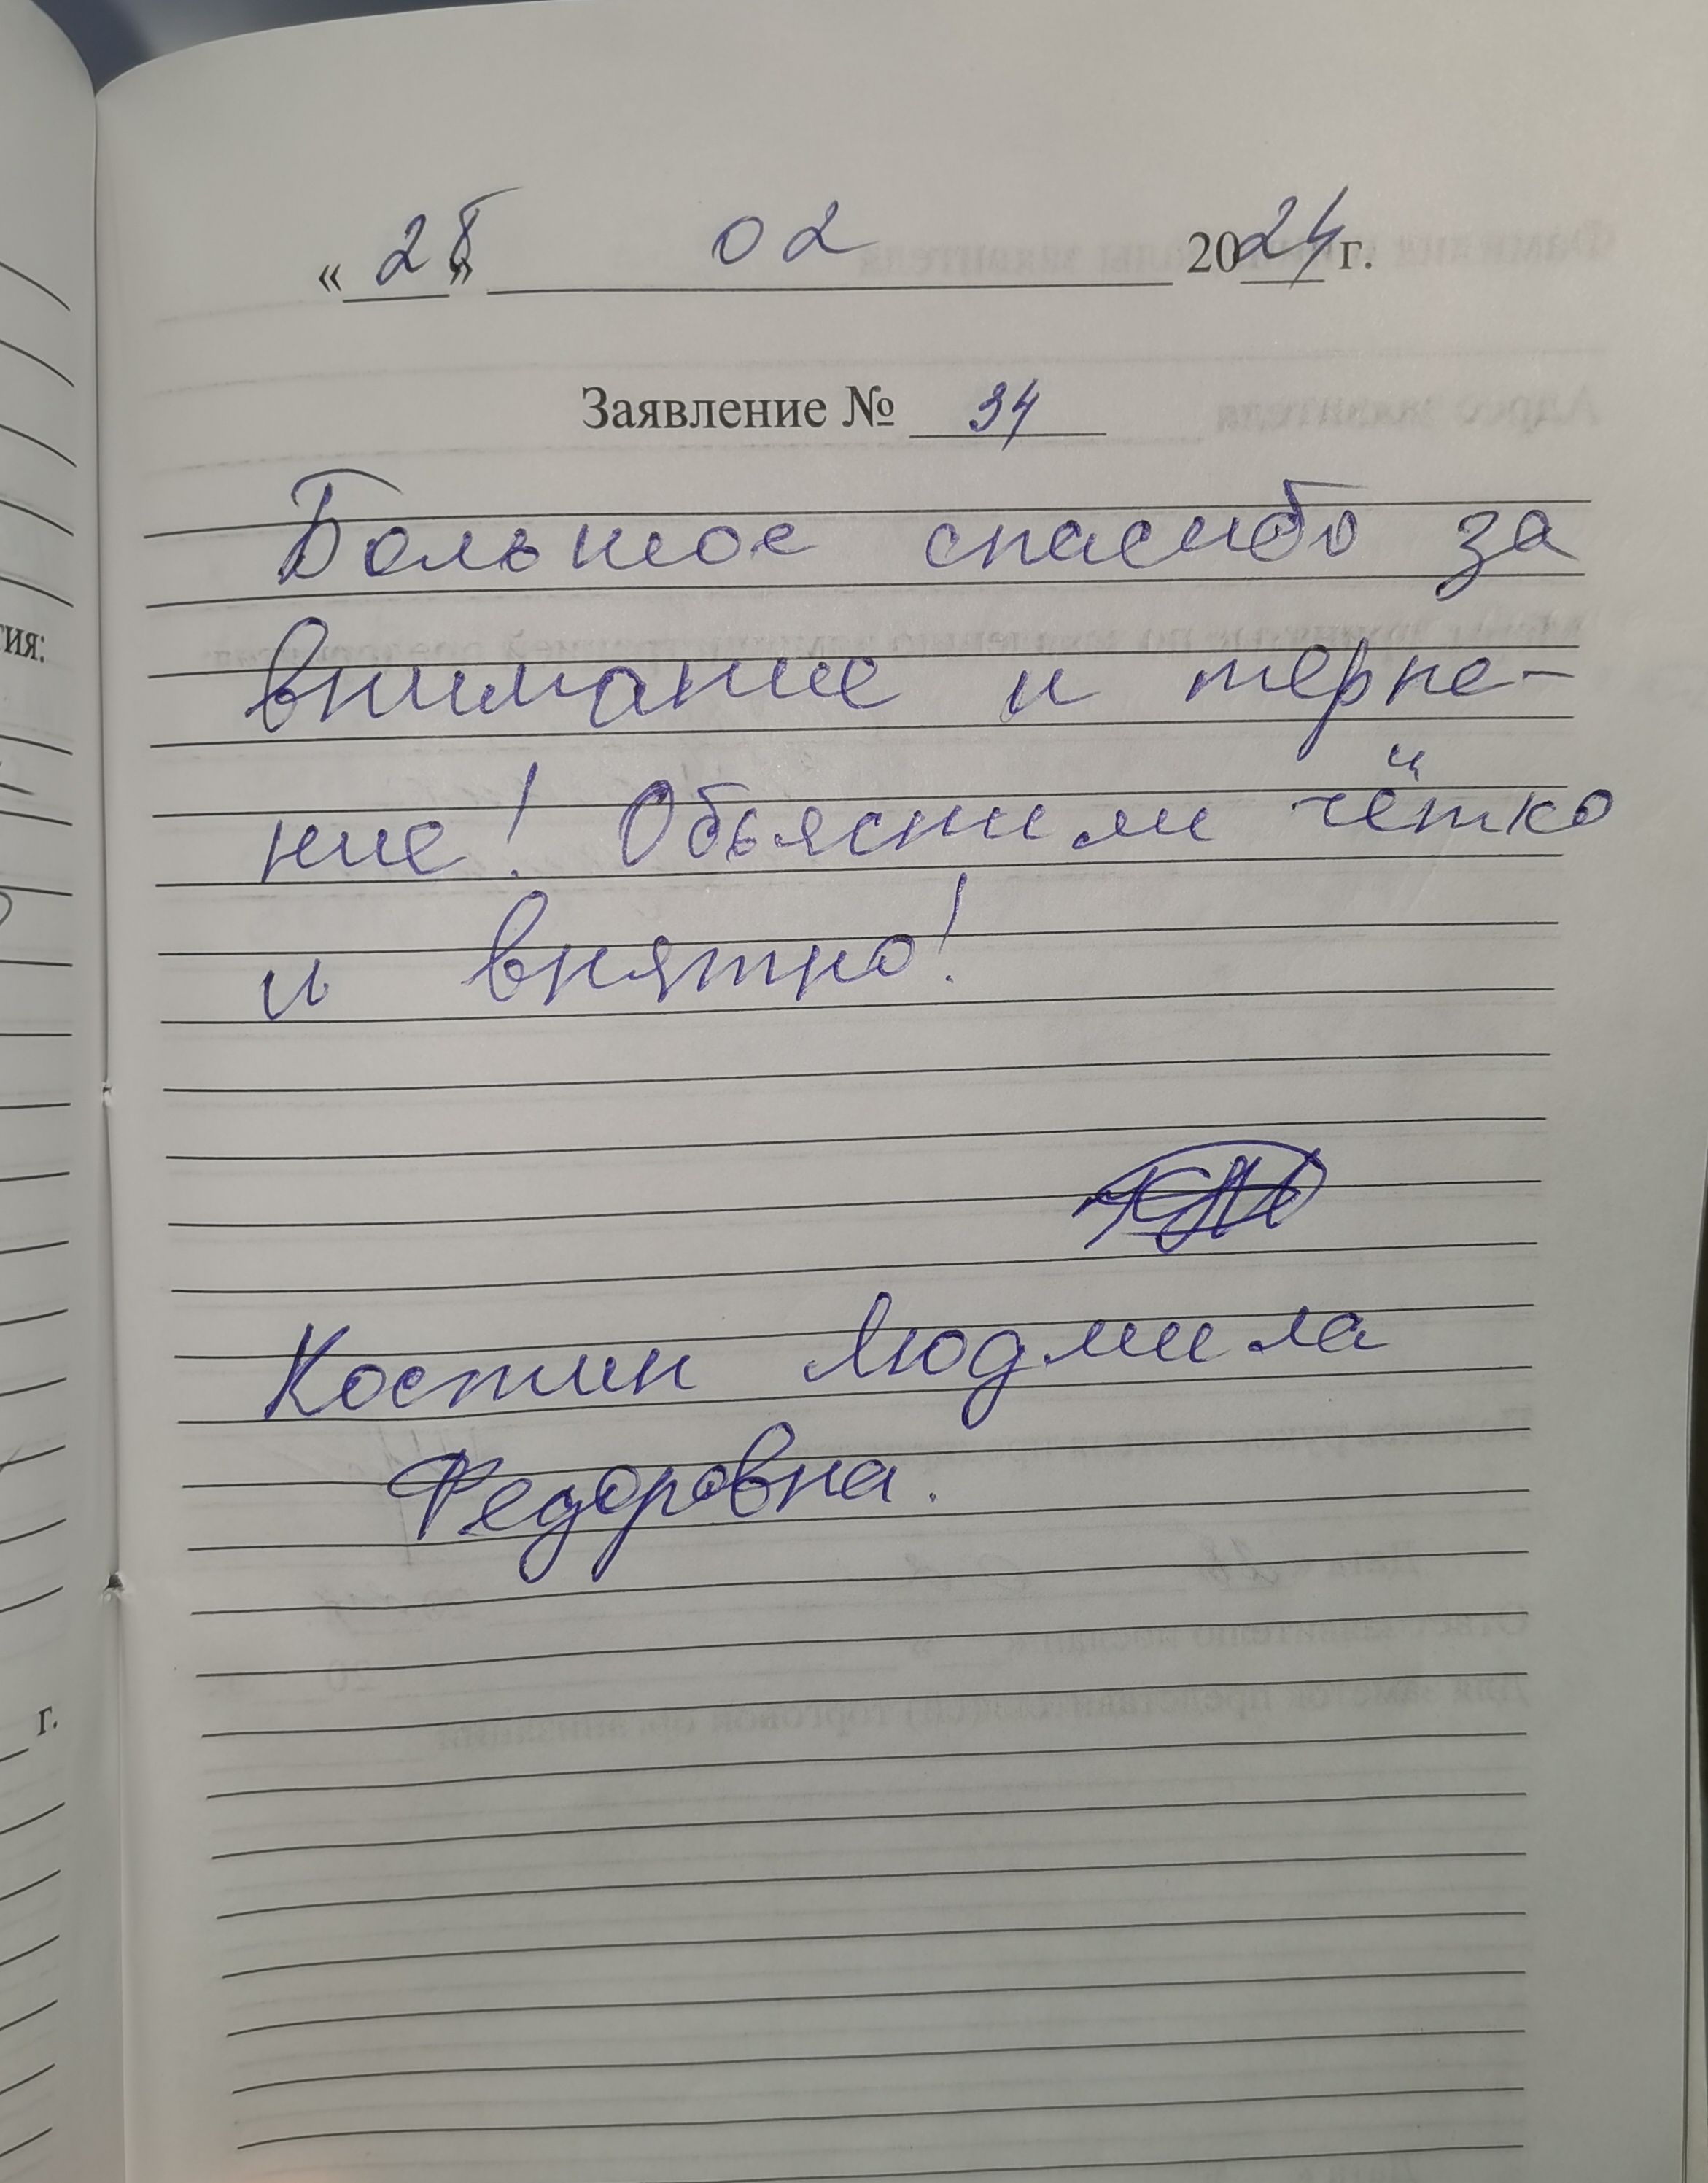 « 28 » 02 2024 г.
Заявление № 34
Большое спасибо за
внимание и терпе-
ние! Объяснили чётко
и внятно!
Костин Людмила
Федоровна.
тия:
г.